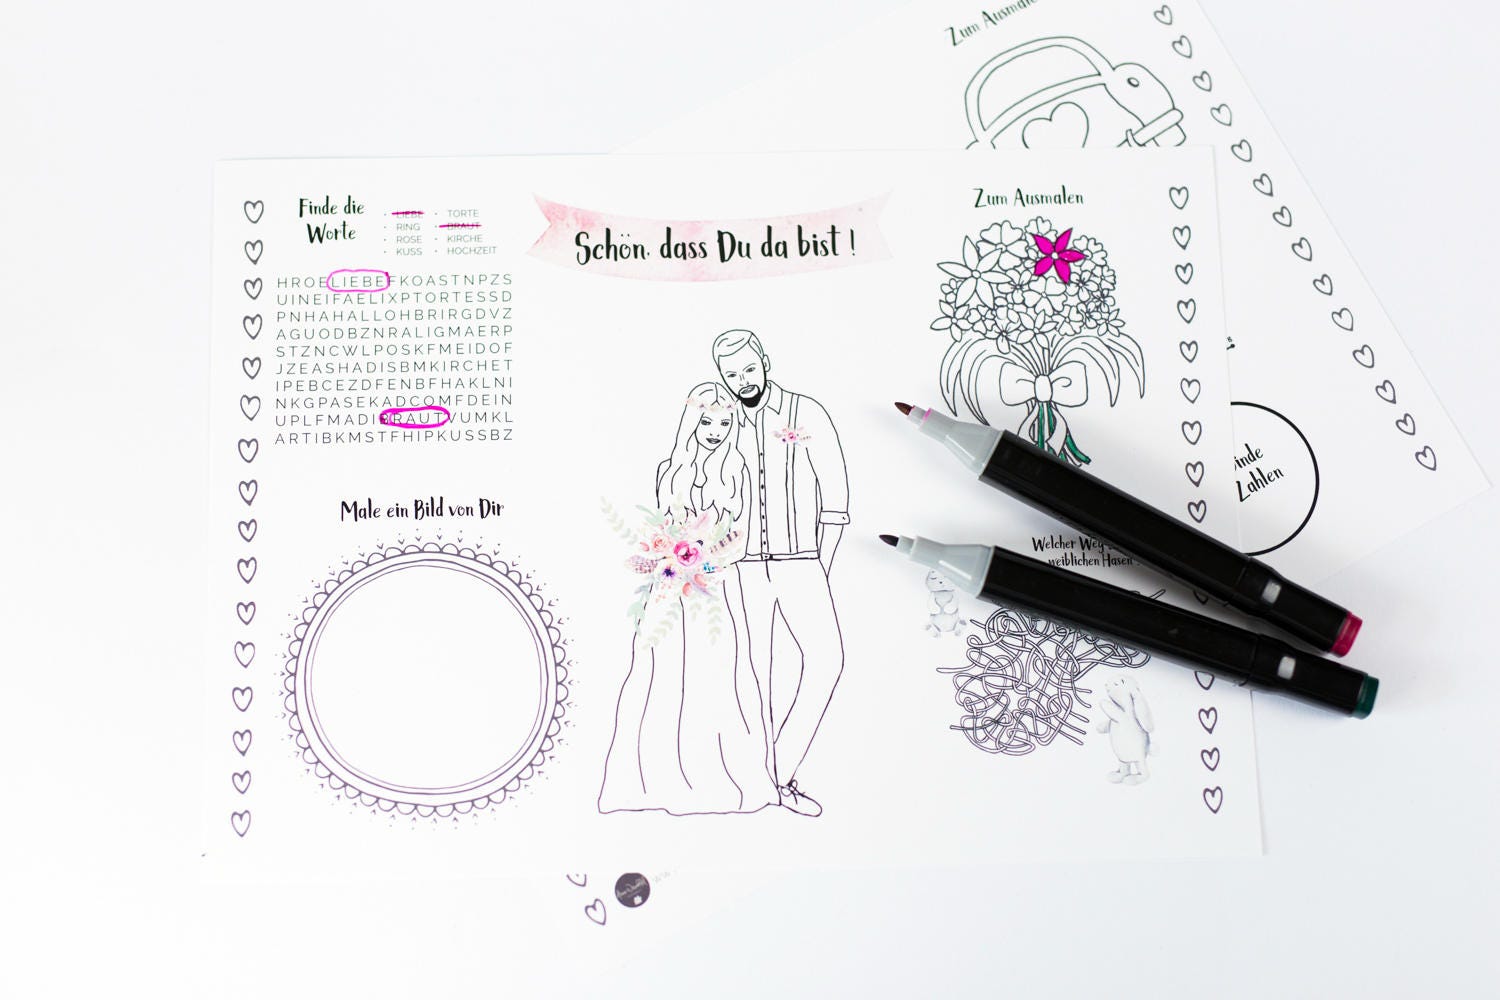 Zum Ausmalen
Finde die
Worte
LIEBE
RING
ROSE
KUSS
TORTE
BRAUT
KIRCHE
HOCHZEIT
HROELIEBEFKOASTNPZS
UINEIFAELIXPTORTESSD
PNHAHALLOHBRIRGDVZ
AGUODBZNRALIGMAERP
STZNCWLPOSKFMEIDOF
JZEASHADISBMKIRCHET
IPEBCEZDFENBFHAKLNI
NKGPASEKADCOMFDEIN
UPLFMADIBRAUTVUMKL
ARTIBKMSTFHIPKUSSBZ
Schön, dass Du da bist !
Zum Ausmalen
Male ein Bild von Dir
Welcher Weg
weiblichen Hasen
Zahlen